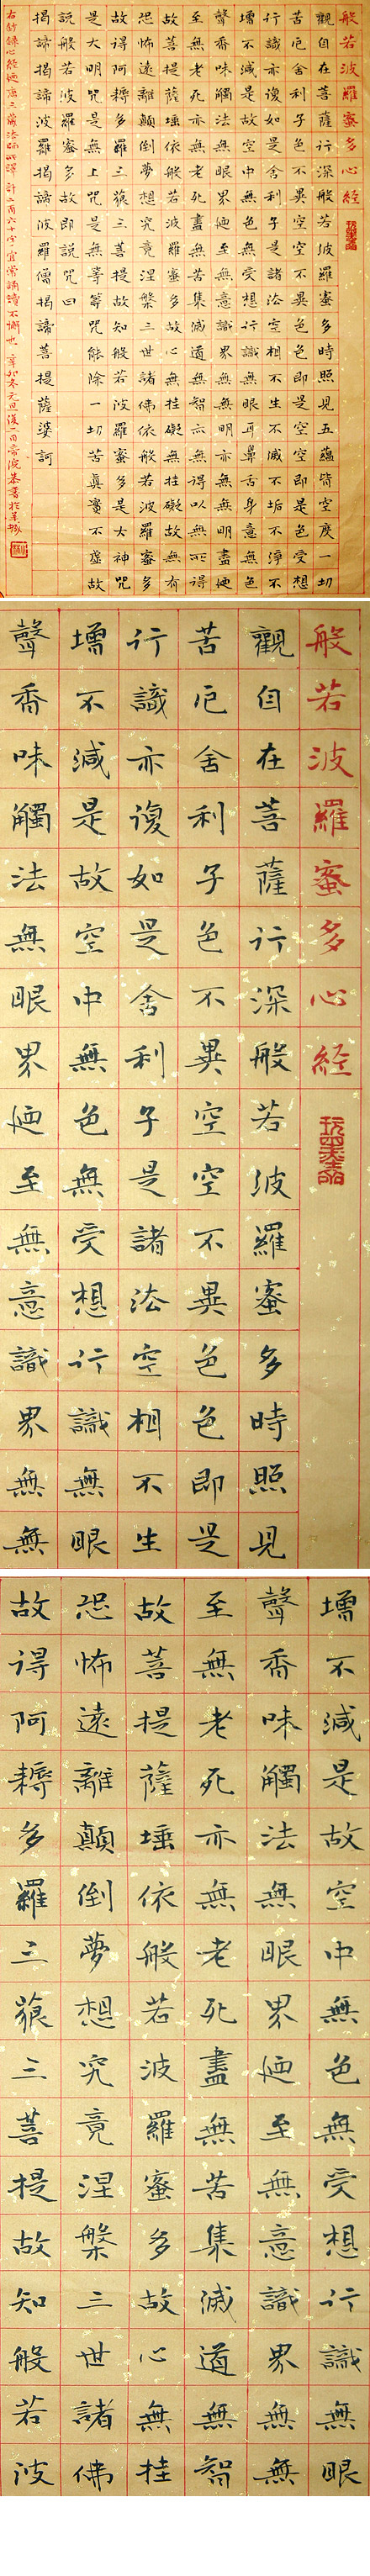 般若波羅蜜多心經
觀自在菩薩行深般若波羅蜜多時照見五蘊皆空度一切
苦厄舍利子色不異空空不異色色即是空空即是色受想
行識亦復如是舍利子是諸法空相不生不滅不垢不淨不
增不減是故空中無色無受想行識無眼耳鼻舌身意無色
聲香味觸法無眼界廼至無意識界無無明亦無無明盡廼
至無老死亦無老死盡無苦集滅道無智亦無得以無所得
故菩提薩埵依般若波羅蜜多故心無挂礙無挂礙故無有
恐怖遠離顛倒夢想究竟涅槃三世諸佛依般若波羅蜜多
故得阿耨多羅三藐三菩提故知般若波羅蜜多是大神咒
是大明咒是無上咒是無等等咒能除一切苦真實不虛故
説般若波羅蜜多故即説咒曰
揭諦揭諦波羅揭諦波羅僧揭諦菩提薩婆訶
右敬錄心經廼唐三藏法師所譯計二百六十字宜常誦讀不懈也辛卯冬元旦後一日
般若波羅蜜多心經
觀自在菩薩行深般若波羅蜜多時照見
苦厄舍利子色不異空空不異色色即是
行識亦復如是舍利子是諸法空相不生
增不減是故空中無色無受想行識無眼
聲香味觸法無眼界廼至無意識界無無
增不減是故空中無色無受想行識無眼
聲香味觸法無眼界廼至無意識界無無
至無老死亦無老死盡無苦集滅道無智
故菩提薩埵依般若波羅蜜多故心無挂
恐怖遠離顛倒夢想究竟涅槃三世諸佛
故得阿耨多羅三藐三菩提故知般若波